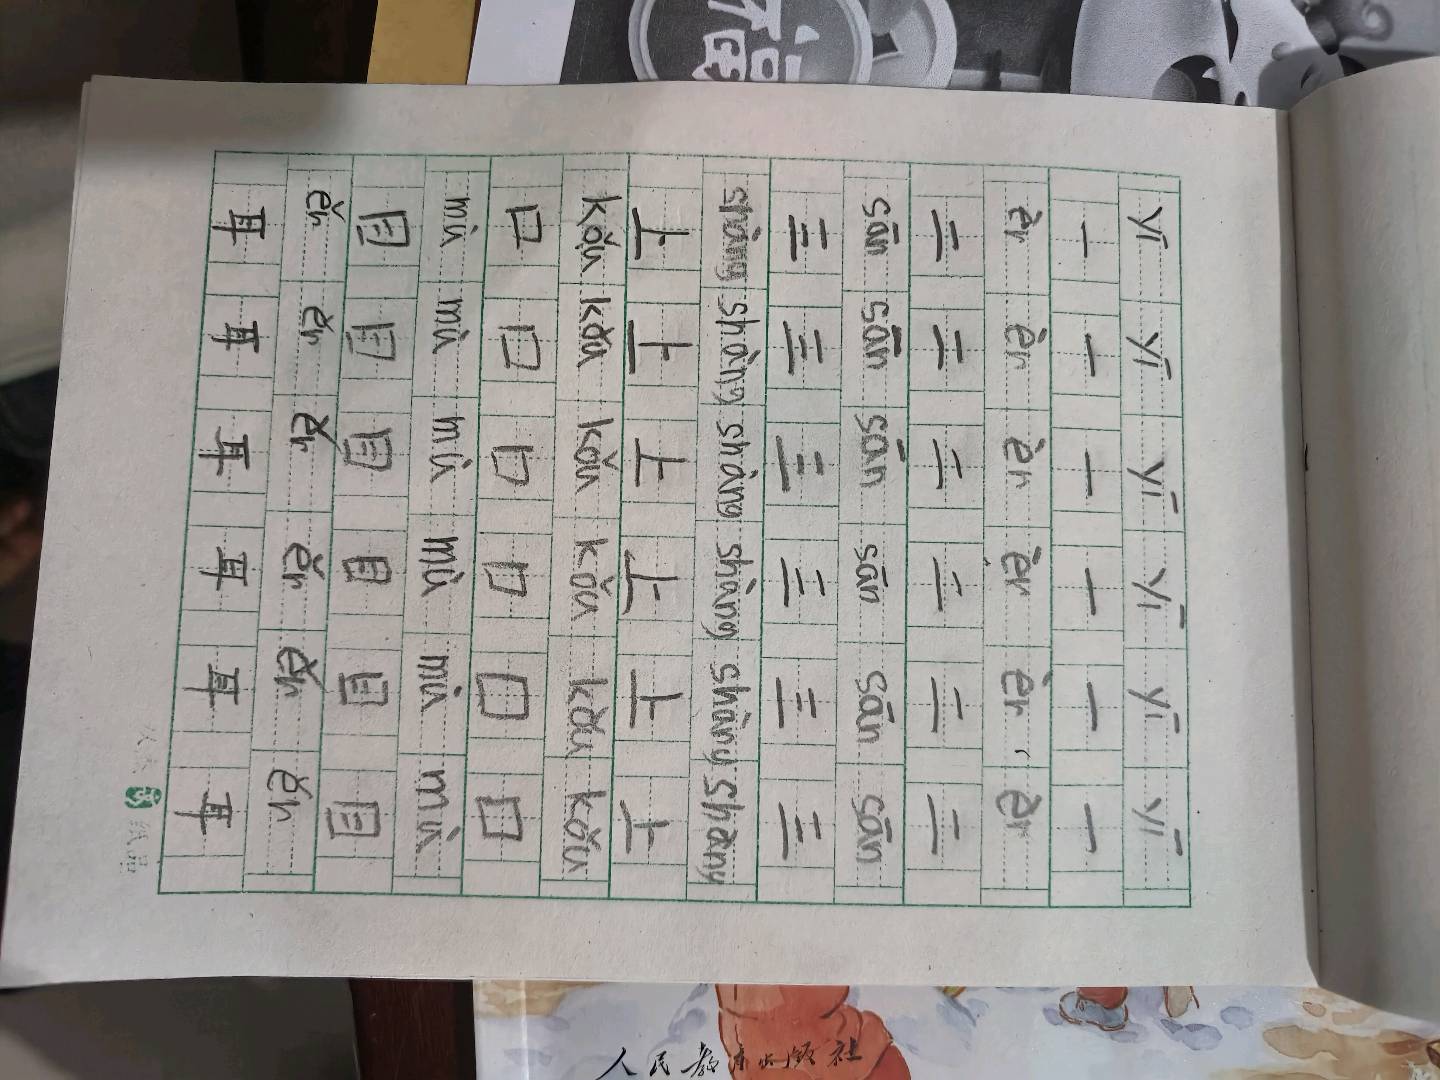 福
yī yī yī yī yī yī
一 一 一 一 一 一
èr èr èr èr èr èr
二 二 二 二 二 二
sān sān sān sān sān sān
三 三 三 三 三 三
shàng shàng shàng shàng shàng shàng
上 上 上 上 上 上
kǒu kǒu kǒu kǒu kǒu kǒu
口 口 口 口 口 口
mù mù mù mù mù mù
目 目 目 目 目 目
ěr ěr ěr ěr ěr ěr
耳 耳 耳 耳 耳 耳
纸品
人民教育出版社